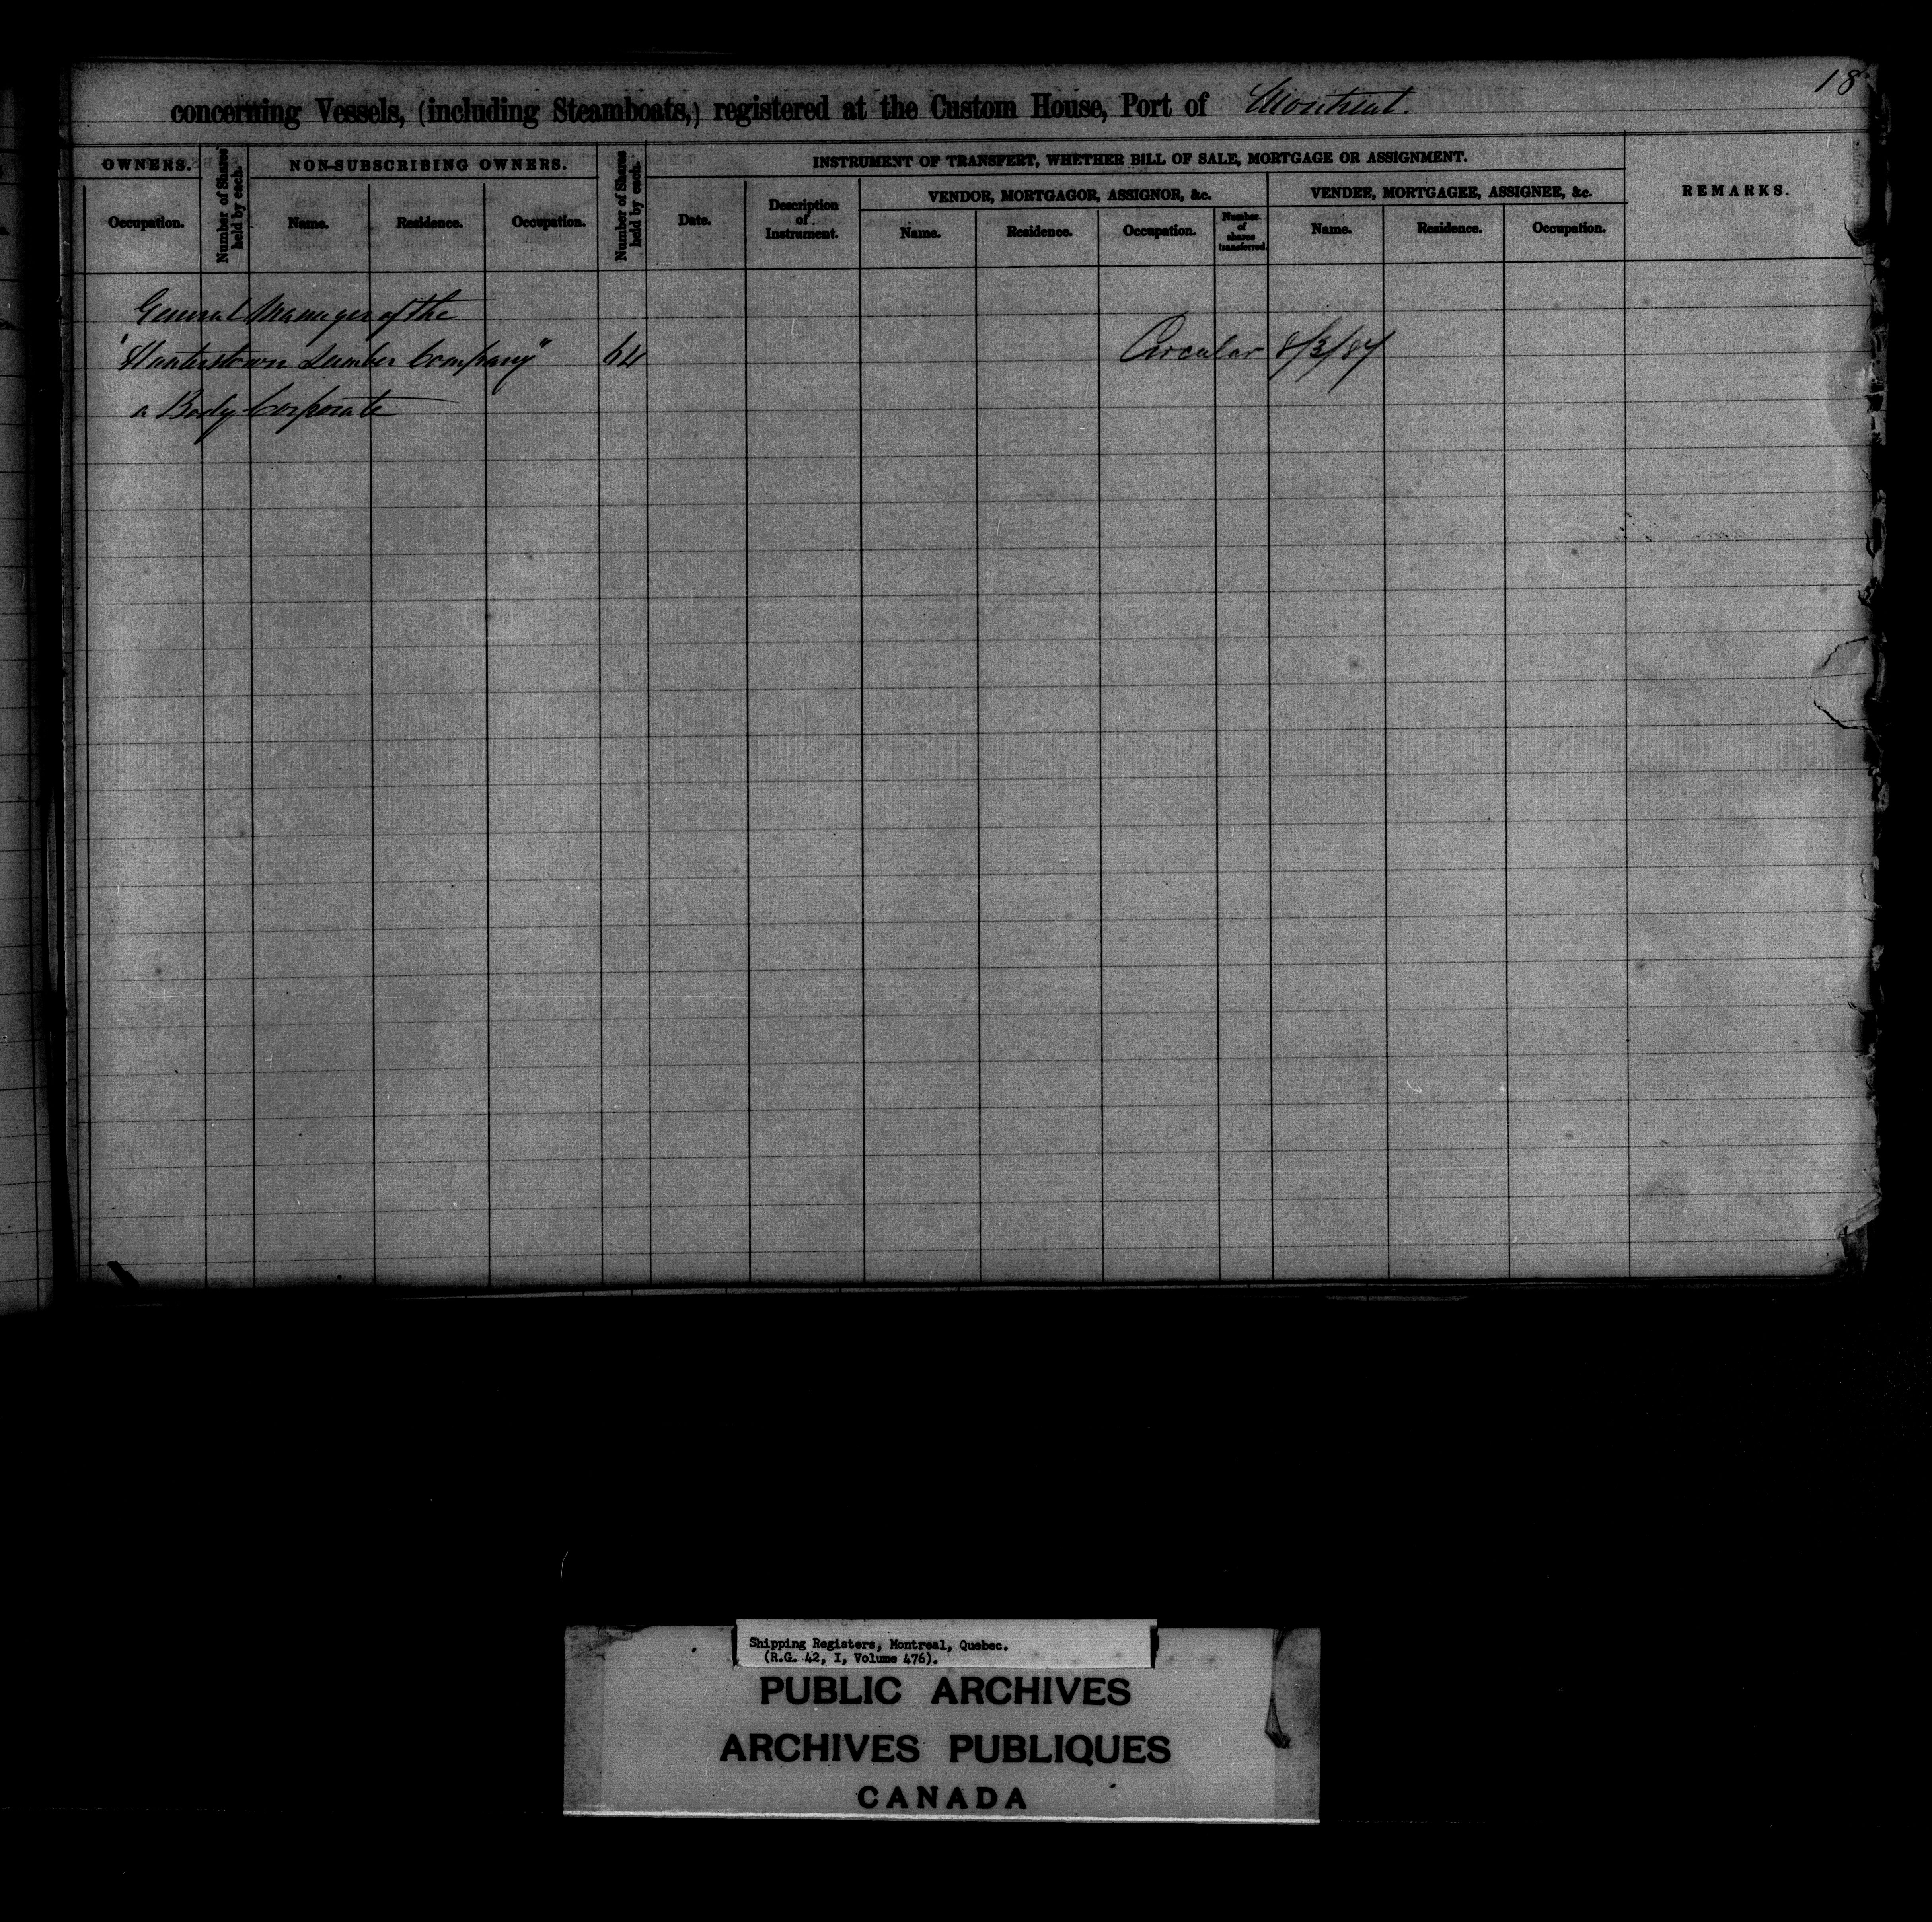 18
concerning Vessels, (including Steamboats,) registered at the Custom House, Port of Montreal.
OWNERS.
Number of Shares held by each.
NON-SUBSCRIBING OWNERS.
Number of Shares held by each.
INSTRUMENT OF TRANSFERT, WHETHER BILL OF SALE, MORTGAGE OR ASSIGNMENT.
REMARKS.
VENDOR, MORTGAGOR, ASSIGNOR, &c.
VENDEE, MORTGAGEE, ASSIGNEE, &c.
Occupation.
Name.
Residence.
Occupation.
Date.
Description of Instrument.
Name.
Residence.
Occupation.
Number of shares transferred.
Name.
Residence.
Occupation.
General Manager of the
"Hunterstown Lumber Company" 64 Circular 8/3/84
a Body Corporate
Shipping Registers, Montreal, Quebec.
(R.G. 42, I, Volume 476).
PUBLIC ARCHIVES
ARCHIVES PUBLIQUES
CANADA